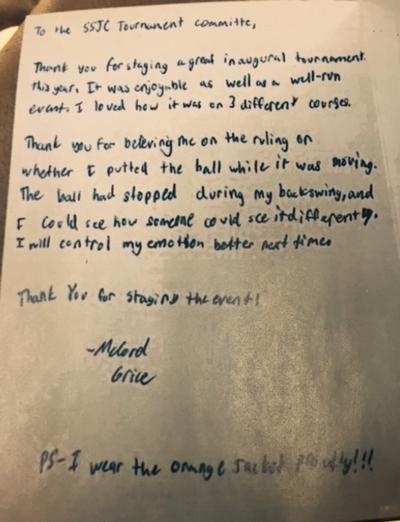 To the SSJC Tournament committe,
Thank you for staging a great inaugural tournament
this year. It was enjoyable as well as a well-run
event. I loved how it was on 3 different courses.
Thank you for beleving me on the ruling on
whether I putted the ball while it was moving.
The ball had stopped during my backswing, and
I could see how someone could see it differently.
I will control my emotion better next time.
Thank You for staging the event!
-McCord
Grice
PS-I wear the orange Jacket proudly!!!